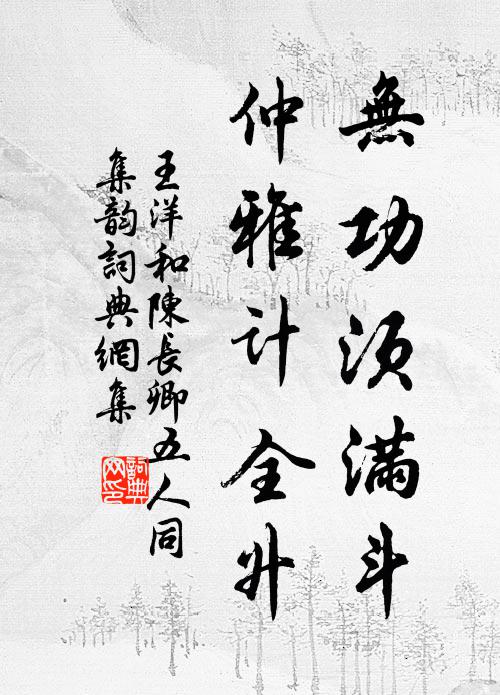 無功須滿斗
仲雅計全升
王洋和陳長卿五人同
集韵詞典網集
詞典網印